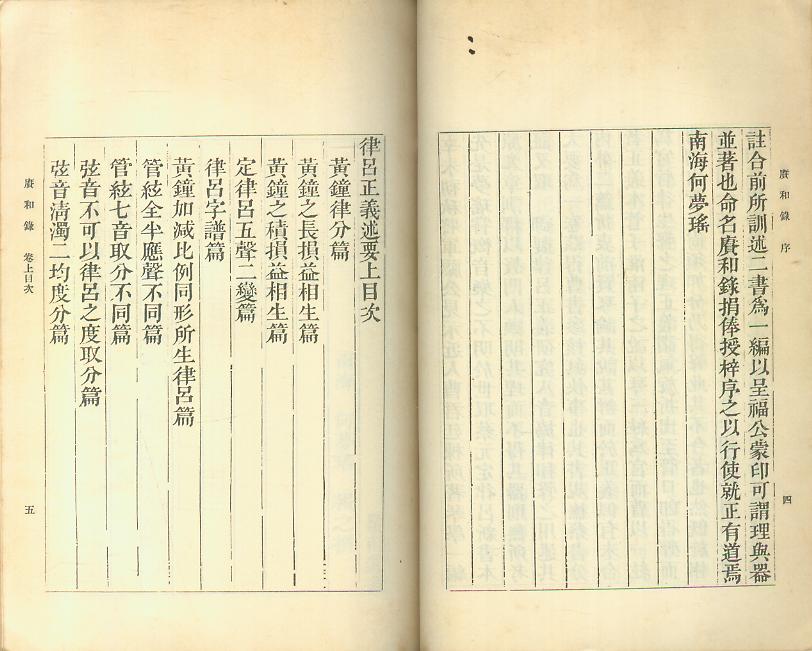 賡和錄 序
註合前所訓述二書爲一編以呈福公蒙印可謂理與器
並著也命名賡和錄捐俸授梓序之以行使就正有道焉
南海何夢瑤
四
律呂正義述要上目次
黃鐘律分篇
黃鐘之長損益相生篇
黃鐘之積損益相生篇
定律呂五聲二變篇
律呂字譜篇
黃鐘加減比例同形所生律呂篇
管絃全半應聲不同篇
管絃七音取分不同篇
弦音不可以律呂之度取分篇
弦音淸濁二均度分篇
賡和錄 卷上目次
五